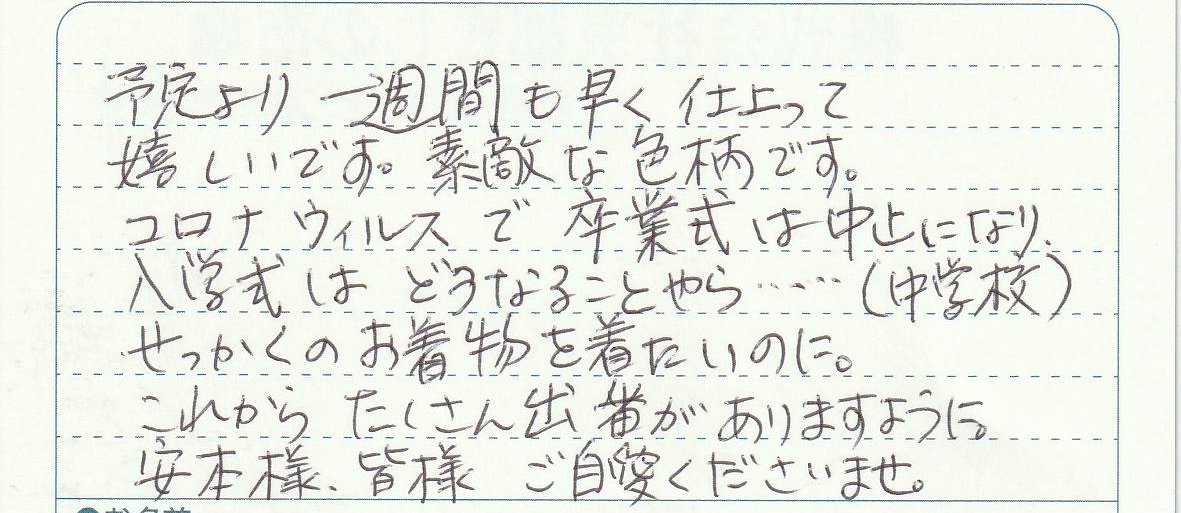 予定より一週間も早く仕上って
嬉しいです。素敵な色柄です。
コロナウィルスで卒業式は中止になり、
入学式はどうなることやら……(中学校)
せっかくのお着物を着たいのに。
これからたくさん出番がありますように。
安本様、皆様 ご自愛くださいませ。